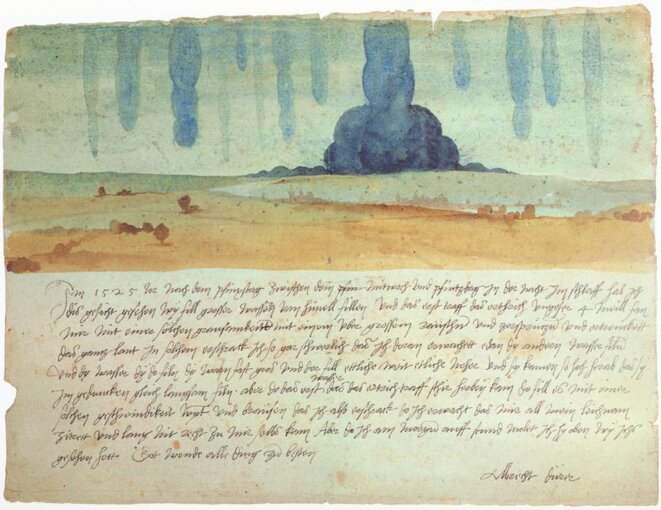 Im 1525 Jor nach dem pfinxstag zwischen dem Mitwoch und pfintzdag in der nacht im schlaff hab ich
dis gesicht gesehen wy fill grosser wassern vom himell fillen Und das erst traff das erthrich ungefer 4 meill fan
mir mit einer solchen grausamkeitt mit einem uber grossem raüschn und zersprützn und ertrenckett
das gantz lant In solchem erschrack ich so gar schwerlich das ich doran erwachett e dan dy andern wasser filn
Und dy wasser dy do filn dy warn fast gros und der fill ettliche weit ettliche neher und sy kamen so hoch herab das sy
im gedancken gleich langsam filn aber do das erst wasser das das ertrich traff schir herbey kam do fill es mit einer
solchen geschwindikeit wynt und braüsen das ich also erschrack do ich erwacht das mir all mein leichnam
zitrett und lang nit recht zu mir selbs kam Aber do ich am morgn auff stund molet ich hy oben wy ichs
gesehen hett Got wende alle ding zu besten
Albrecht dürer